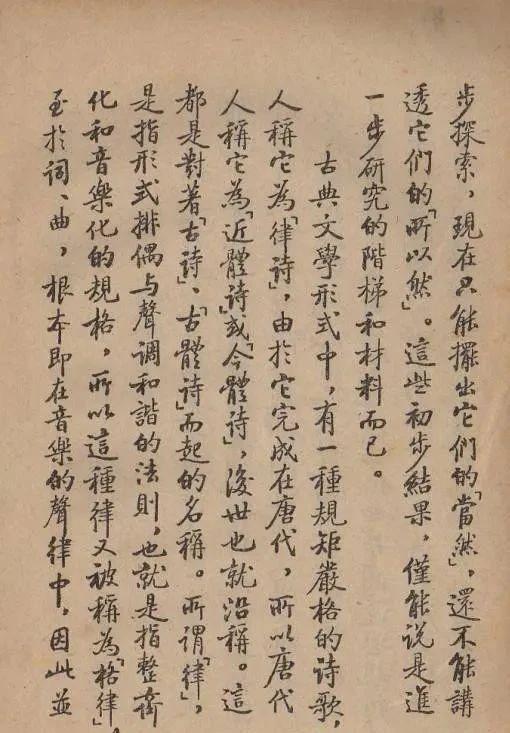 步探索，現在只能擺出它們的「當然」，還不能講
透它們的「所以然」。這些初步結果，僅能說是進
一步研究的階梯和材料而已。
古典文學形式中，有一種規矩嚴格的詩歌，
人稱它為「律詩」，由於它完成在唐代，所以唐代
人稱它為「近體詩」或「今體詩」，後世也就沿稱。這
都是對著「古詩」、「古體詩」而起的名稱。所謂「律」，
是指形式排偶与聲调和諧的法則，也就是指整齊
化和音樂化的規格，所以這種律又被稱為「格律」，
至於词、曲，根本即在音樂的聲律中，因此並